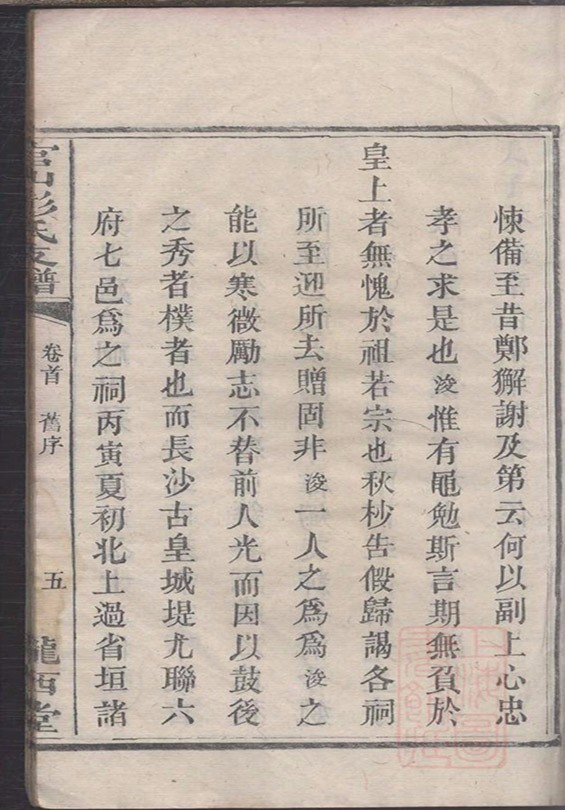 悚備至昔鄭獬謝及第云何以副上心忠
孝之求是也浚惟有黽勉斯言期無負於
皇上者無愧於祖若宗也秋杪告假歸謁各祠
所至迎所去贈固非浚一人之為為浚之
能以寒微勵志不替前人光而因以鼓後
之秀者樸者也而長沙古皇城堤尤聯六
府七邑爲之祠丙寅夏初北上過省垣諸
官山彭氏支譜
卷首 舊序
五
隴西堂